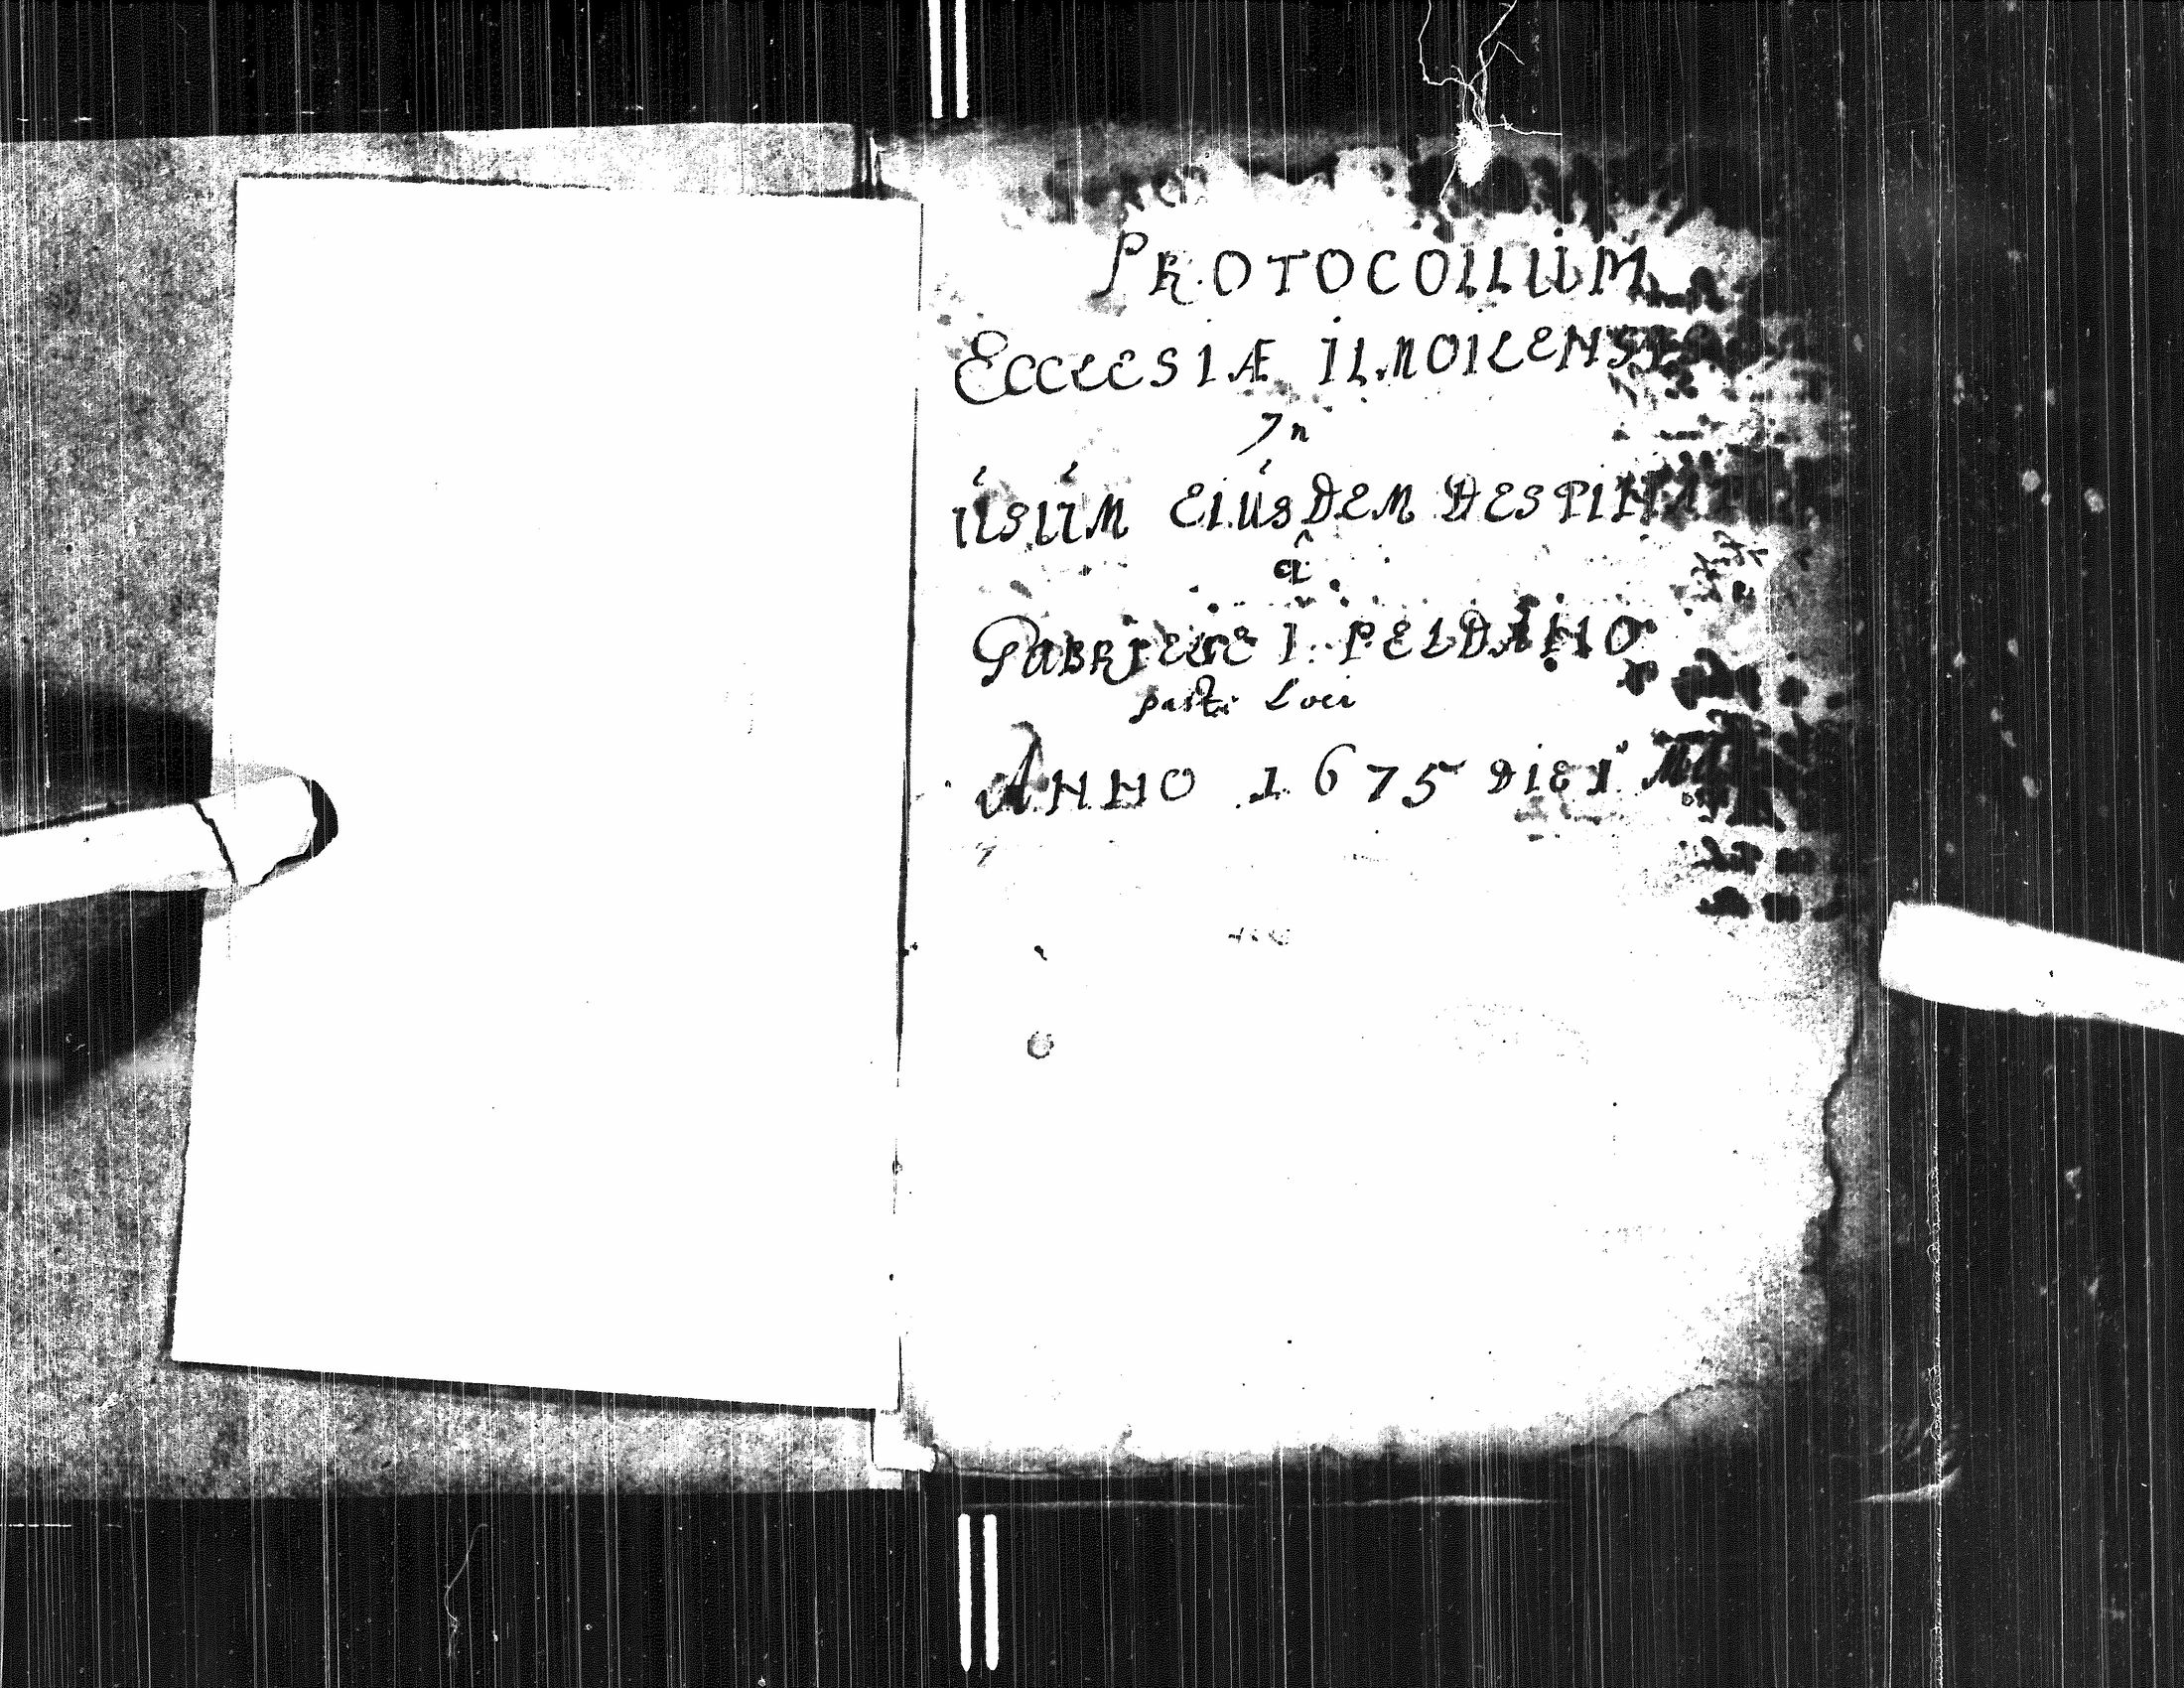 PROTOCOLLUM
ECCLESIÆ ILMOILENSI
In
USUM EIUSDEM DESPIN
â
GABRIELE I: PELDANO
past: Loci
ANNO 1675 DIE 1